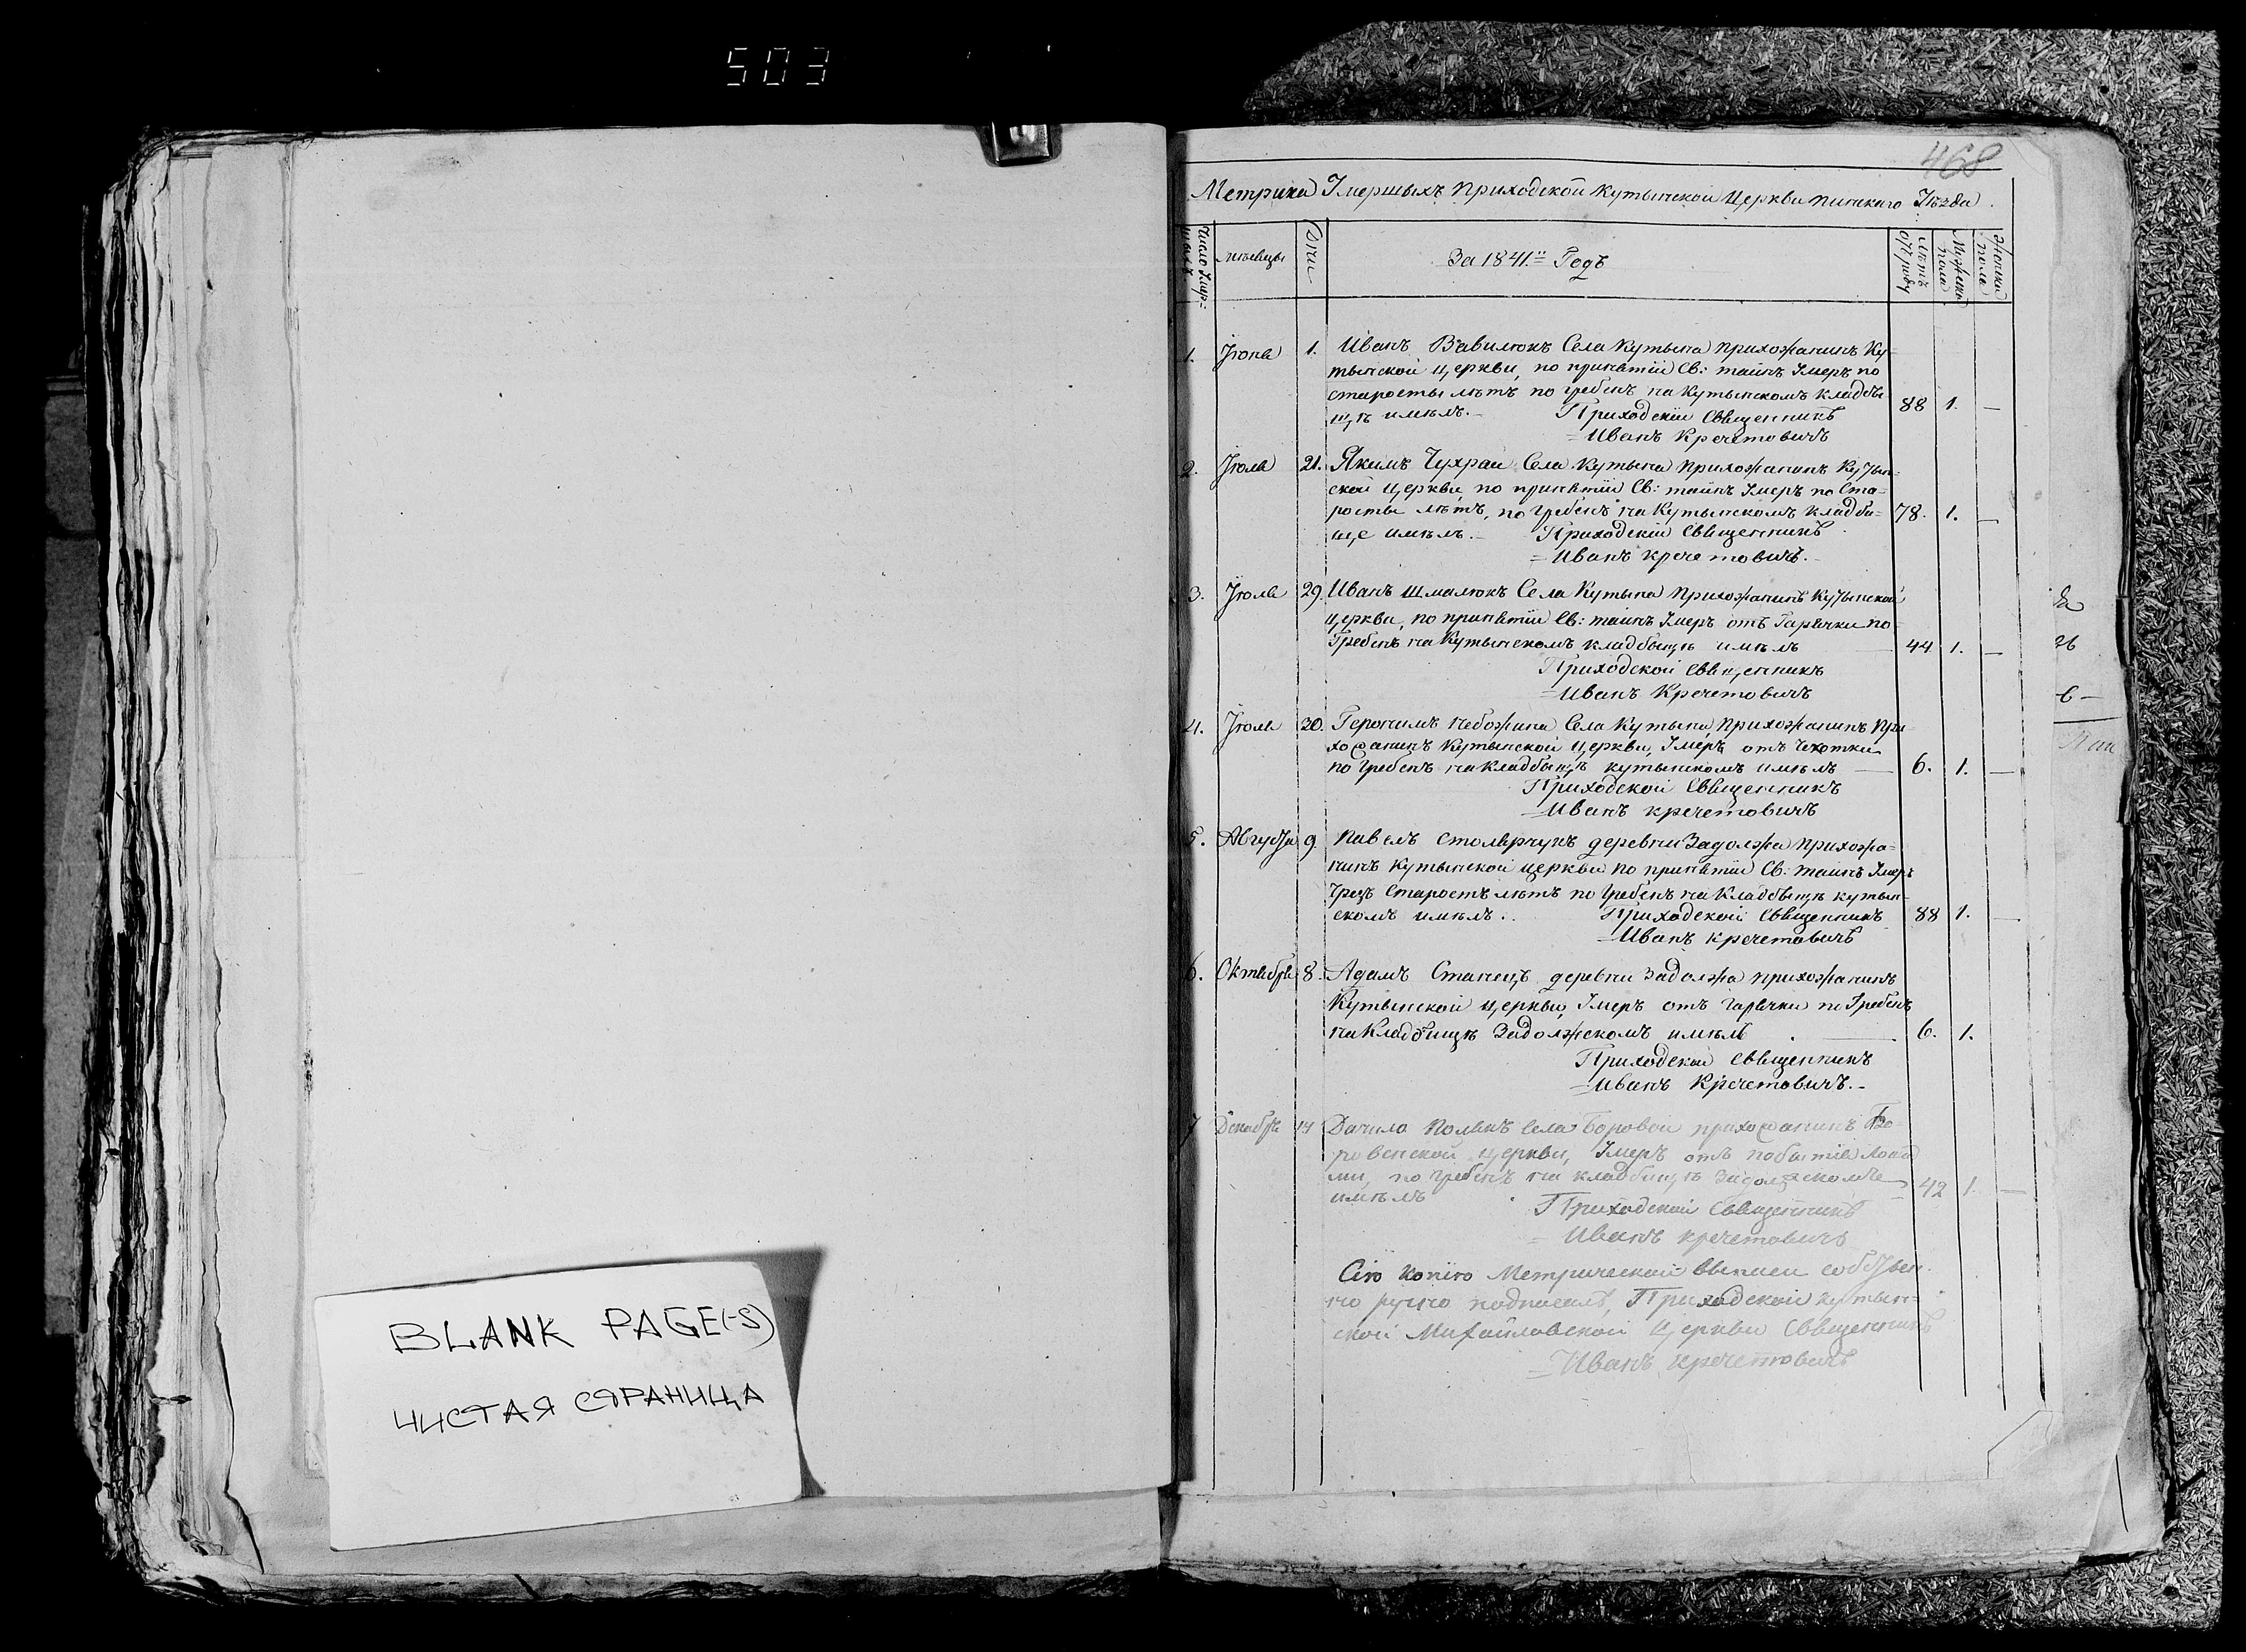 503
BLANK PAGE(-S)
ЧИСТАЯ СТРАНИЦА
468
Метрика Умершыхъ приходской Кутынской Церкви пинскаго Уѣзда.
Число Умер=
шыхъ
мѣсяцы
Дни
За 1841й Годъ
Лѣтъ
отроду
Мужеска
пола
Женска
пола
1. Іюня 1. Иванъ Вавилюкъ Села Кутына прихожанинъ Ку=
тынской церкви, по принятіи Св: таинъ Умеръ по
старосты лѣтъ погребенъ на Кутынскомъ кладбы
щѣ имѣлъ.- 88 1. —
Приходскій Священникъ
=Иванъ Кречетовичъ
2. Іюля 21. Якимъ Чухрай Села Кутына прихожанинъ Кутын=
ской церкви, по принятіи Св: таинъ Умеръ по Ста=
росты лѣтъ, погребенъ на Кутынскомъ кладби= 78. 1. —
ще имѣлъ.- Приходскій Священникъ
=Иванъ Кречетовичъ.-
3. Іюля 29. Иванъ Шмалюкъ Села Кутына прихожанинъ Кутынской
церкви, по принятіи Св: таинъ Умеръ отъ Гарячки по=
Гребенъ на Кутынскомъ кладбыщѣ имѣлъ 44 1. —
Приходской Священникъ
=Иванъ Кречетовичъ
4. Іюля 30. Геронимъ Небожина Села Кутына, прихожанинъ при
хожанинъ Кутынской церкви, Умеръ отъ Чехотки
погребенъ на кладбыщѣ кутынскомъ имѣлъ — 6. 1. —
Приходской Священникъ
=Иванъ Кречетовичъ
5. Августа 9. Павелъ Столярчукъ деревни Задолжа прихожа=
нинъ Кутынской церкви по принятіи Св: таинъ Умеръ
Чрезъ Старостъ лѣтъ погребенъ на Кладбыщѣ кутын=
скомъ имѣлъ.. Приходской Священникъ 88 1. —
=Иванъ Кречетовичъ
6. Октября 8. Адамъ Станецъ деревни Задолжа прихожанинъ
Кутынской церкви, Умеръ отъ гарячки поГребенъ
на Кладбищѣ Задолжскомъ имѣлъ 6. 1.
Приходской Священникъ
=Иванъ Кречетовичъ.-
7 Декабря 14 Данило села Боровой прихожанинъ Бо
ровенской церкви, Умеръ отъ побытія
ми, погребенъ на кладбищѣ Задолжскомъ 42 1. —
имѣлъ Приходской Священникъ
= Иванъ Кречетовичъ
Сію копію Метрической выписи собствен=
но ручно подписалъ, Приходской кутын=
ской Михайловской Церкви Священникъ
=Иванъ Кречетовичъ